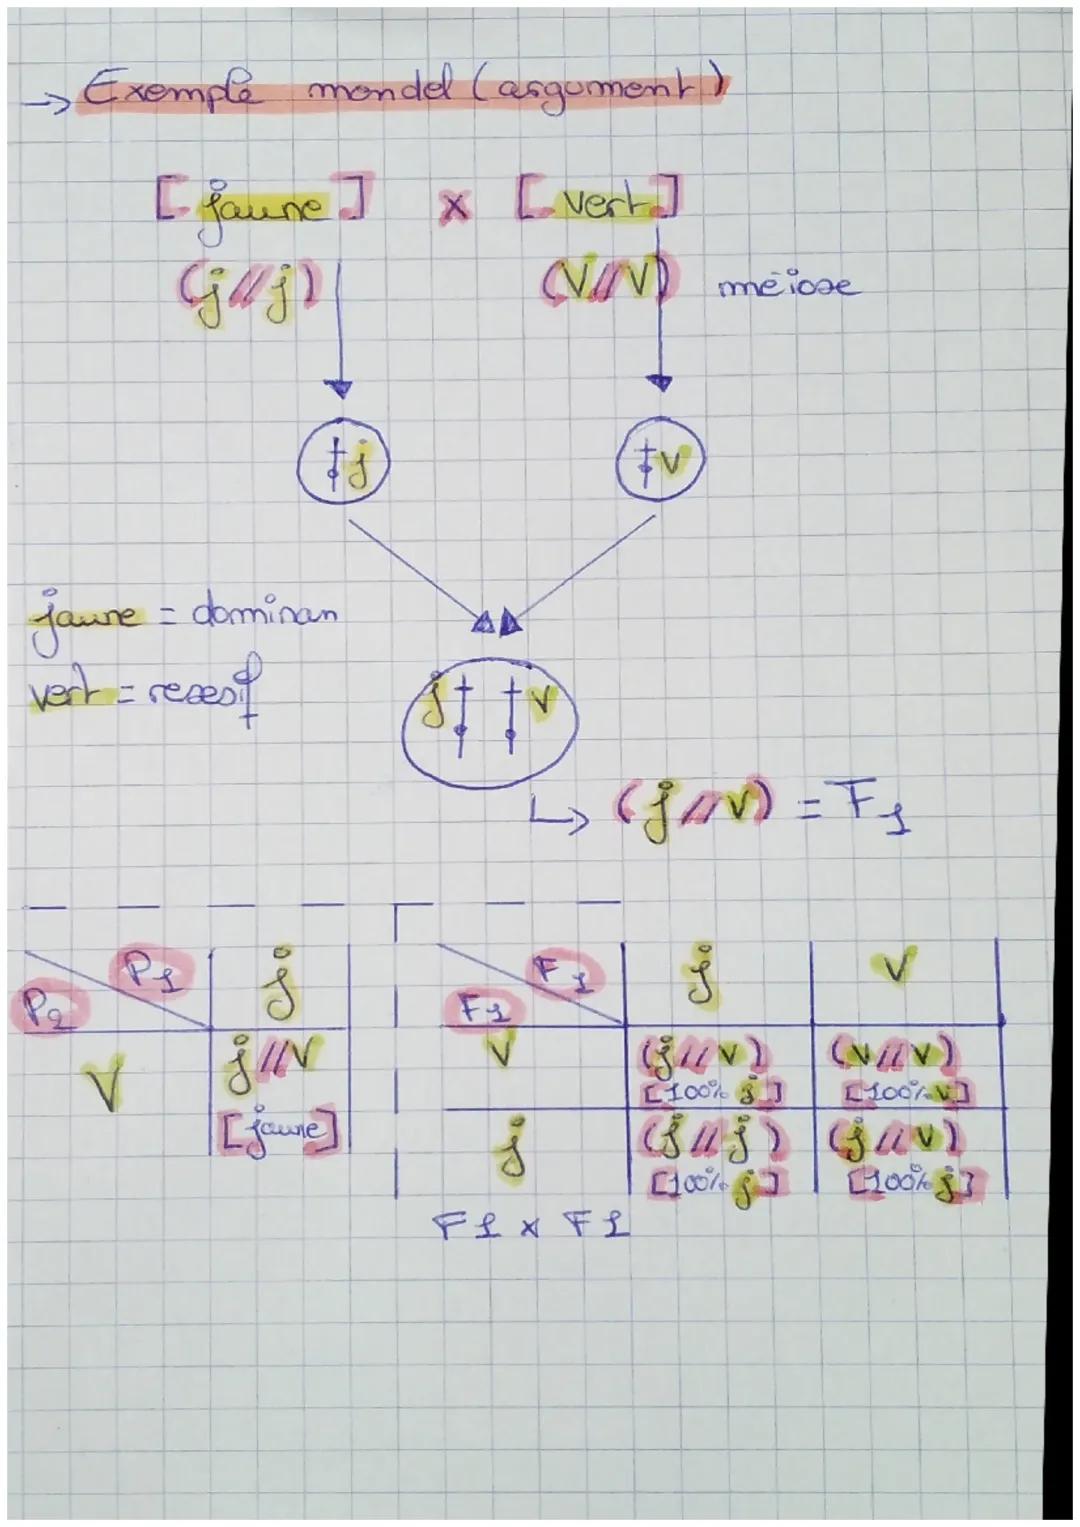 → Exemple mendel (argument)
[jaune] x [vert]
(j//j) (V//V) méiose
j v
jaune = dominan
vert = resesif
j v
↳ (j//v) = F1
P1 j
P2
V j//V
[jaune]
F1 j v
F1
v (j//v) (v//v)
[100% j] [100% v]
j (j//j) (j//v)
[100% j] [100% j]
F1 x F1